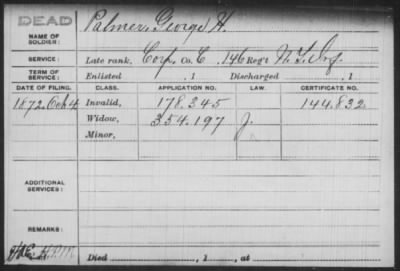 DEAD
NAME OF SOLDIER: Palmer, George H.
SERVICE: Late rank, Corp. Co. C, 146 Reg't N.Y. Inf.
TERM OF SERVICE: Enlisted , 1 Discharged , 1
DATE OF FILING. CLASS. APPLICATION NO. LAW. CERTIFICATE NO.
1872. Oct 4 Invalid, 178.345 144.832
Widow, 354.197 J.
Minor,
ADDITIONAL SERVICES:
REMARKS:
Died , 1 , at